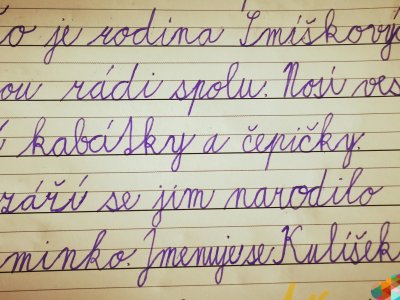 to je rodina Smíškový
ou rádi spolu. Nosí ves
í kabátky a čepičky.
září se jim narodilo
minko. Jmenuje se Kulíšek